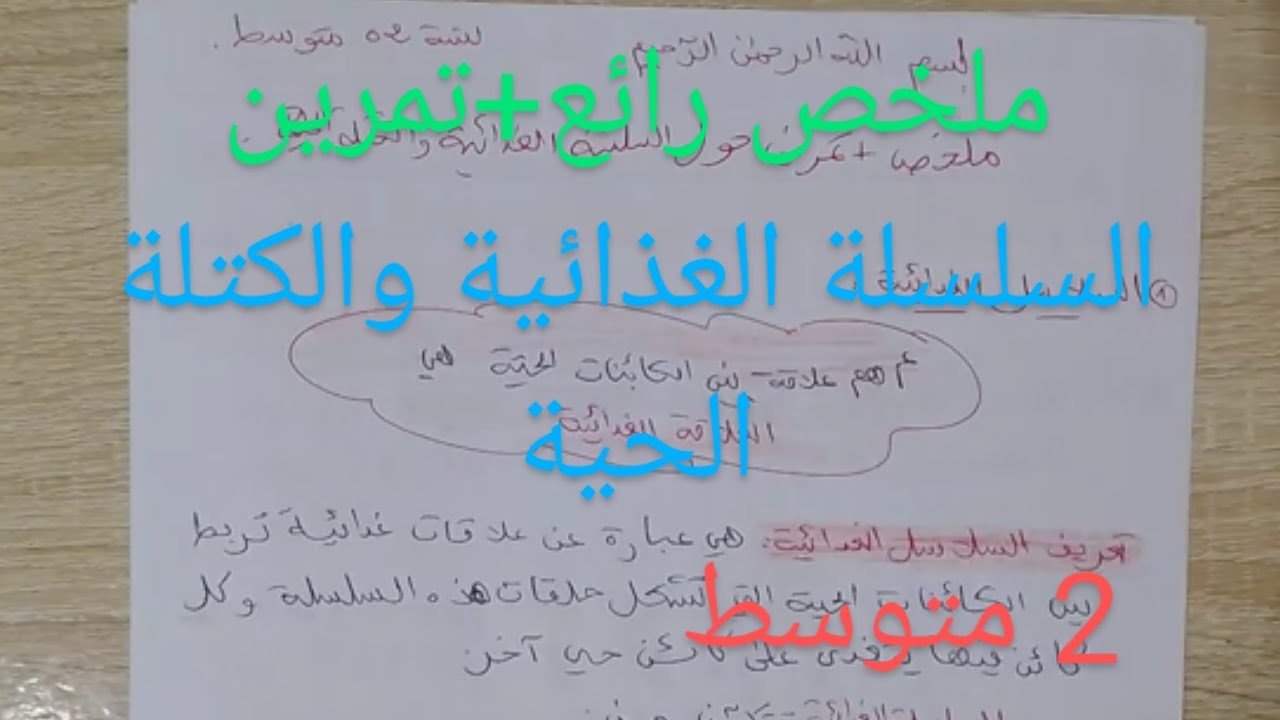 بسم الله الرحمن الرحيم لسنة 02 متوسط.
ملخص رائع+تمرين
ملخص + تمرين حول السلسلة الغذائية والكتلة الحية
السلسلة الغذائية والكتلة
① السلاسل الغذائية
أهم علاقة بين الكائنات الحية هي
العلاقة الغذائية
الحية
تعريف السلاسل الغذائية: هي عبارة عن علاقات غذائية تربط
بين الكائنات الحية التي تشكل حلقات هذه السلسلة وكل
2 متوسط
كائن فيها يتغذى على كائن حي آخر